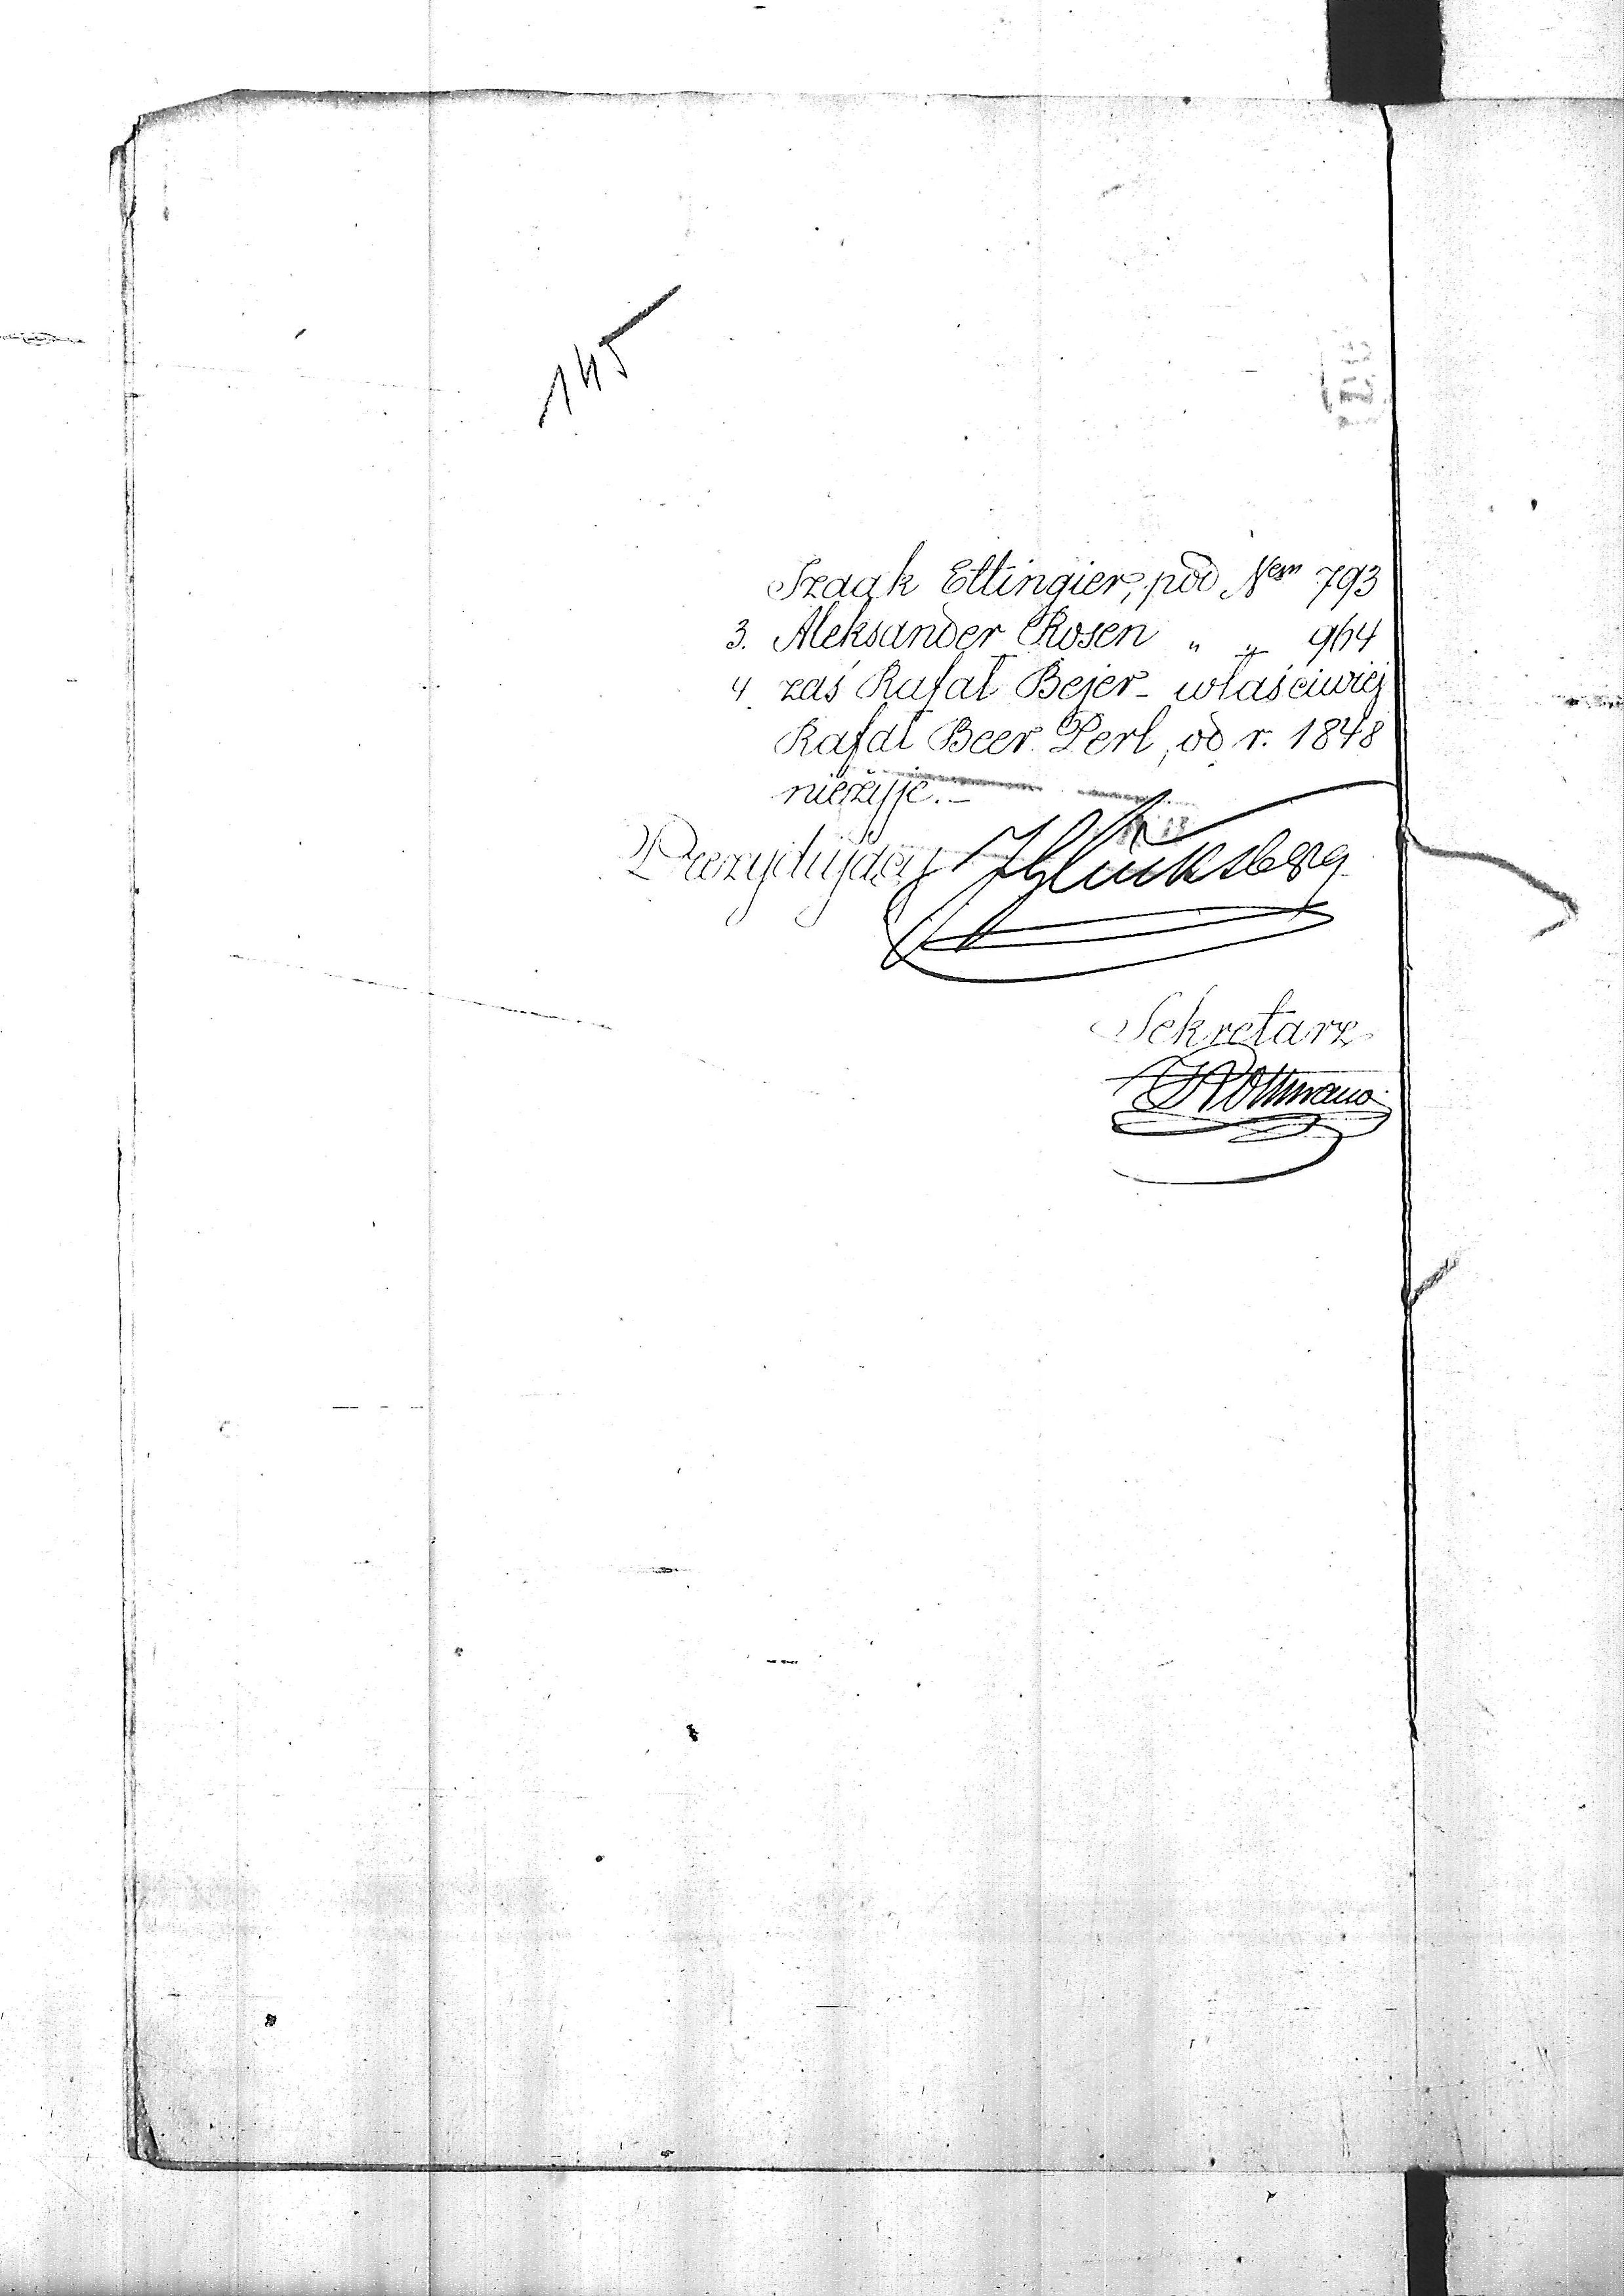 145
Izaak Ettingier, pod Nem 793
3. Aleksander Rosen " " 964
4. zaś Rafał Bejer - właściwiej
Rafał Beer Perl, od r. 1848
nieżyje. -
Prezydujący JGlücksberg
Sekretarz